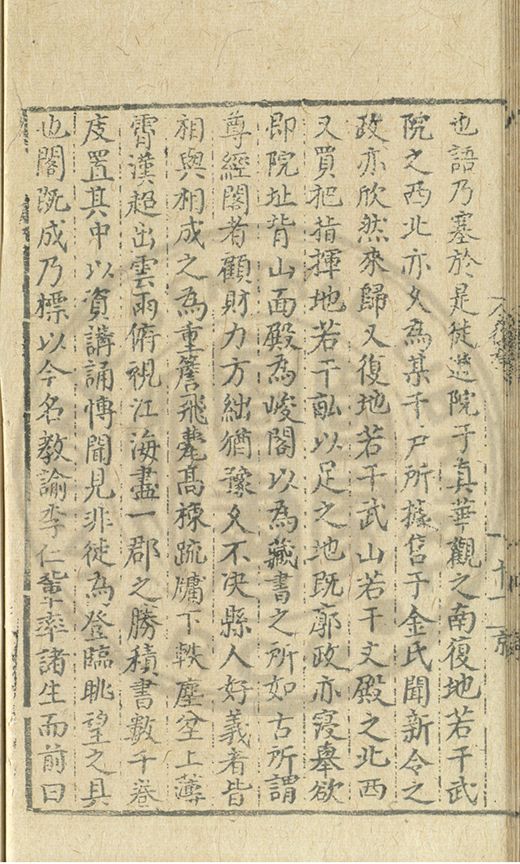 也語乃塞於是徒遷院于真華觀之南復地若干武
院之西北亦久為某千戶所據信于金氏聞新令之
政亦欣然來歸又復地若干武山若干丈殿之北西
又買把指揮地若干畝以足之地既廓政亦寖舉欲
即院址背山面殿為峻閣以為藏書之所如古所謂
尊經閣者顧財力方絀猶豫久不决縣人好義者皆
相與相成之為重簷飛甍高棟疏牖下軼塵坌上薄
霄漢超出雲雨俯視江海盡一郡之勝積書數千卷
庋置其中以資講誦博聞見非徒為登臨眺望之具
也閣既成乃標以今名教諭李仁軰率諸生而前曰